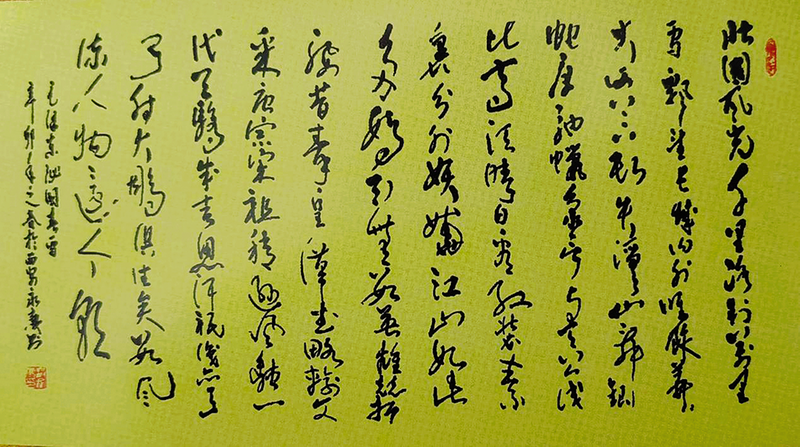 北国风光千里冰封万里
雪飘望长城内外惟余莽莽
大河上下顿失滔滔山舞银
蛇原驰蜡象欲与天公试
比高须晴日看红装素
裹分外妖娆江山如此
多娇引无数英雄竞折
腰惜秦皇汉武略输文
采唐宗宋祖稍逊风骚一
代天骄成吉思汗祇识弯
弓射大雕俱往矣数风
流人物还看今朝
毛泽东沁园春雪
辛卯年之春於西安